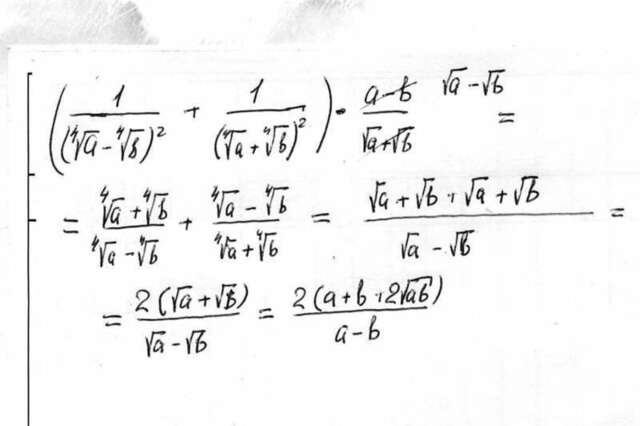 (1/(⁴√a - ⁴√b)² + 1/(⁴√a + ⁴√b)²) · (a-b)/(√a+√b) √a - √b =
= (⁴√a + ⁴√b)/(⁴√a - ⁴√b) + (⁴√a - ⁴√b)/(⁴√a + ⁴√b) = (√a + √b + √a + √b)/(√a - √b) =
= 2(√a + √b)/(√a - √b) = 2(a + b + 2√ab)/(a - b)